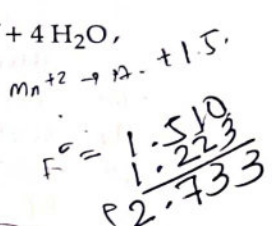 + 4 H₂O,
Mn⁺² → +1.5.
E° = 1.510
1.223
2.733